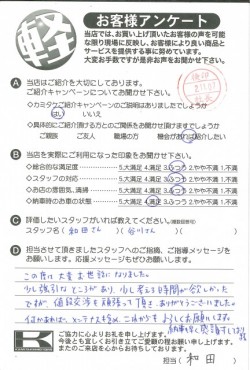 軽
お客様アンケート
当店では、お買い上げ頂いたお客様の声を可能
な限り現場に反映し、お客様により良い商品と
サービスを提供する事に努めています。
大変お手数ですが是非お声をお聞かせ下さい。
A 当店はご紹介を大切にしております。
ご紹介キャンペーンについてお聞かせ下さい。
◇カミタケご紹介キャンペーンのご説明はありましたでしょうか
はい いいえ
◇具体的にご紹介頂ける方との関係をお聞かせ頂けますでしょうか
ご親族 ご友人 職場の方 機会があれば紹介したい
B 当店を実際にご利用になった印象をお聞かせ下さい。
◇総合的な満足度 5.大満足 4.満足 3.ふつう 2.やや不満 1.不満
◇スタッフの対応 5.大満足 4.満足 3.ふつう 2.やや不満 1.不満
◇お店の雰囲気、清掃 5.大満足 4.満足 3.ふつう 2.やや不満 1.不満
◇納車時のお車の状態 5.大満足 4.満足 3.ふつう 2.やや不満 1.不満
C 評価したいスタッフがいれば教えてください。
スタッフ名( 和田さん )( 谷川さん )
D 担当させて頂きましたスタッフへのご指摘、ご指導メッセージを
お願いします。応援メッセージもぜひお聞かせ下さい。
この度は大変お世話になりました。
少し強引なところがあり、少し考える時間が欲しかった
ですが、値段交渉を頑張って頂き、ありがとうございました。
何かあれば、メンテナンスも含め、これからもよろしくお願いします。
ご協力に心よりお礼を申し上げます。
今後とも宜しくお引き立てご愛顧の程お願い申し上げます。
またのご来店を心からお待ちしております。
担当( 和田 )